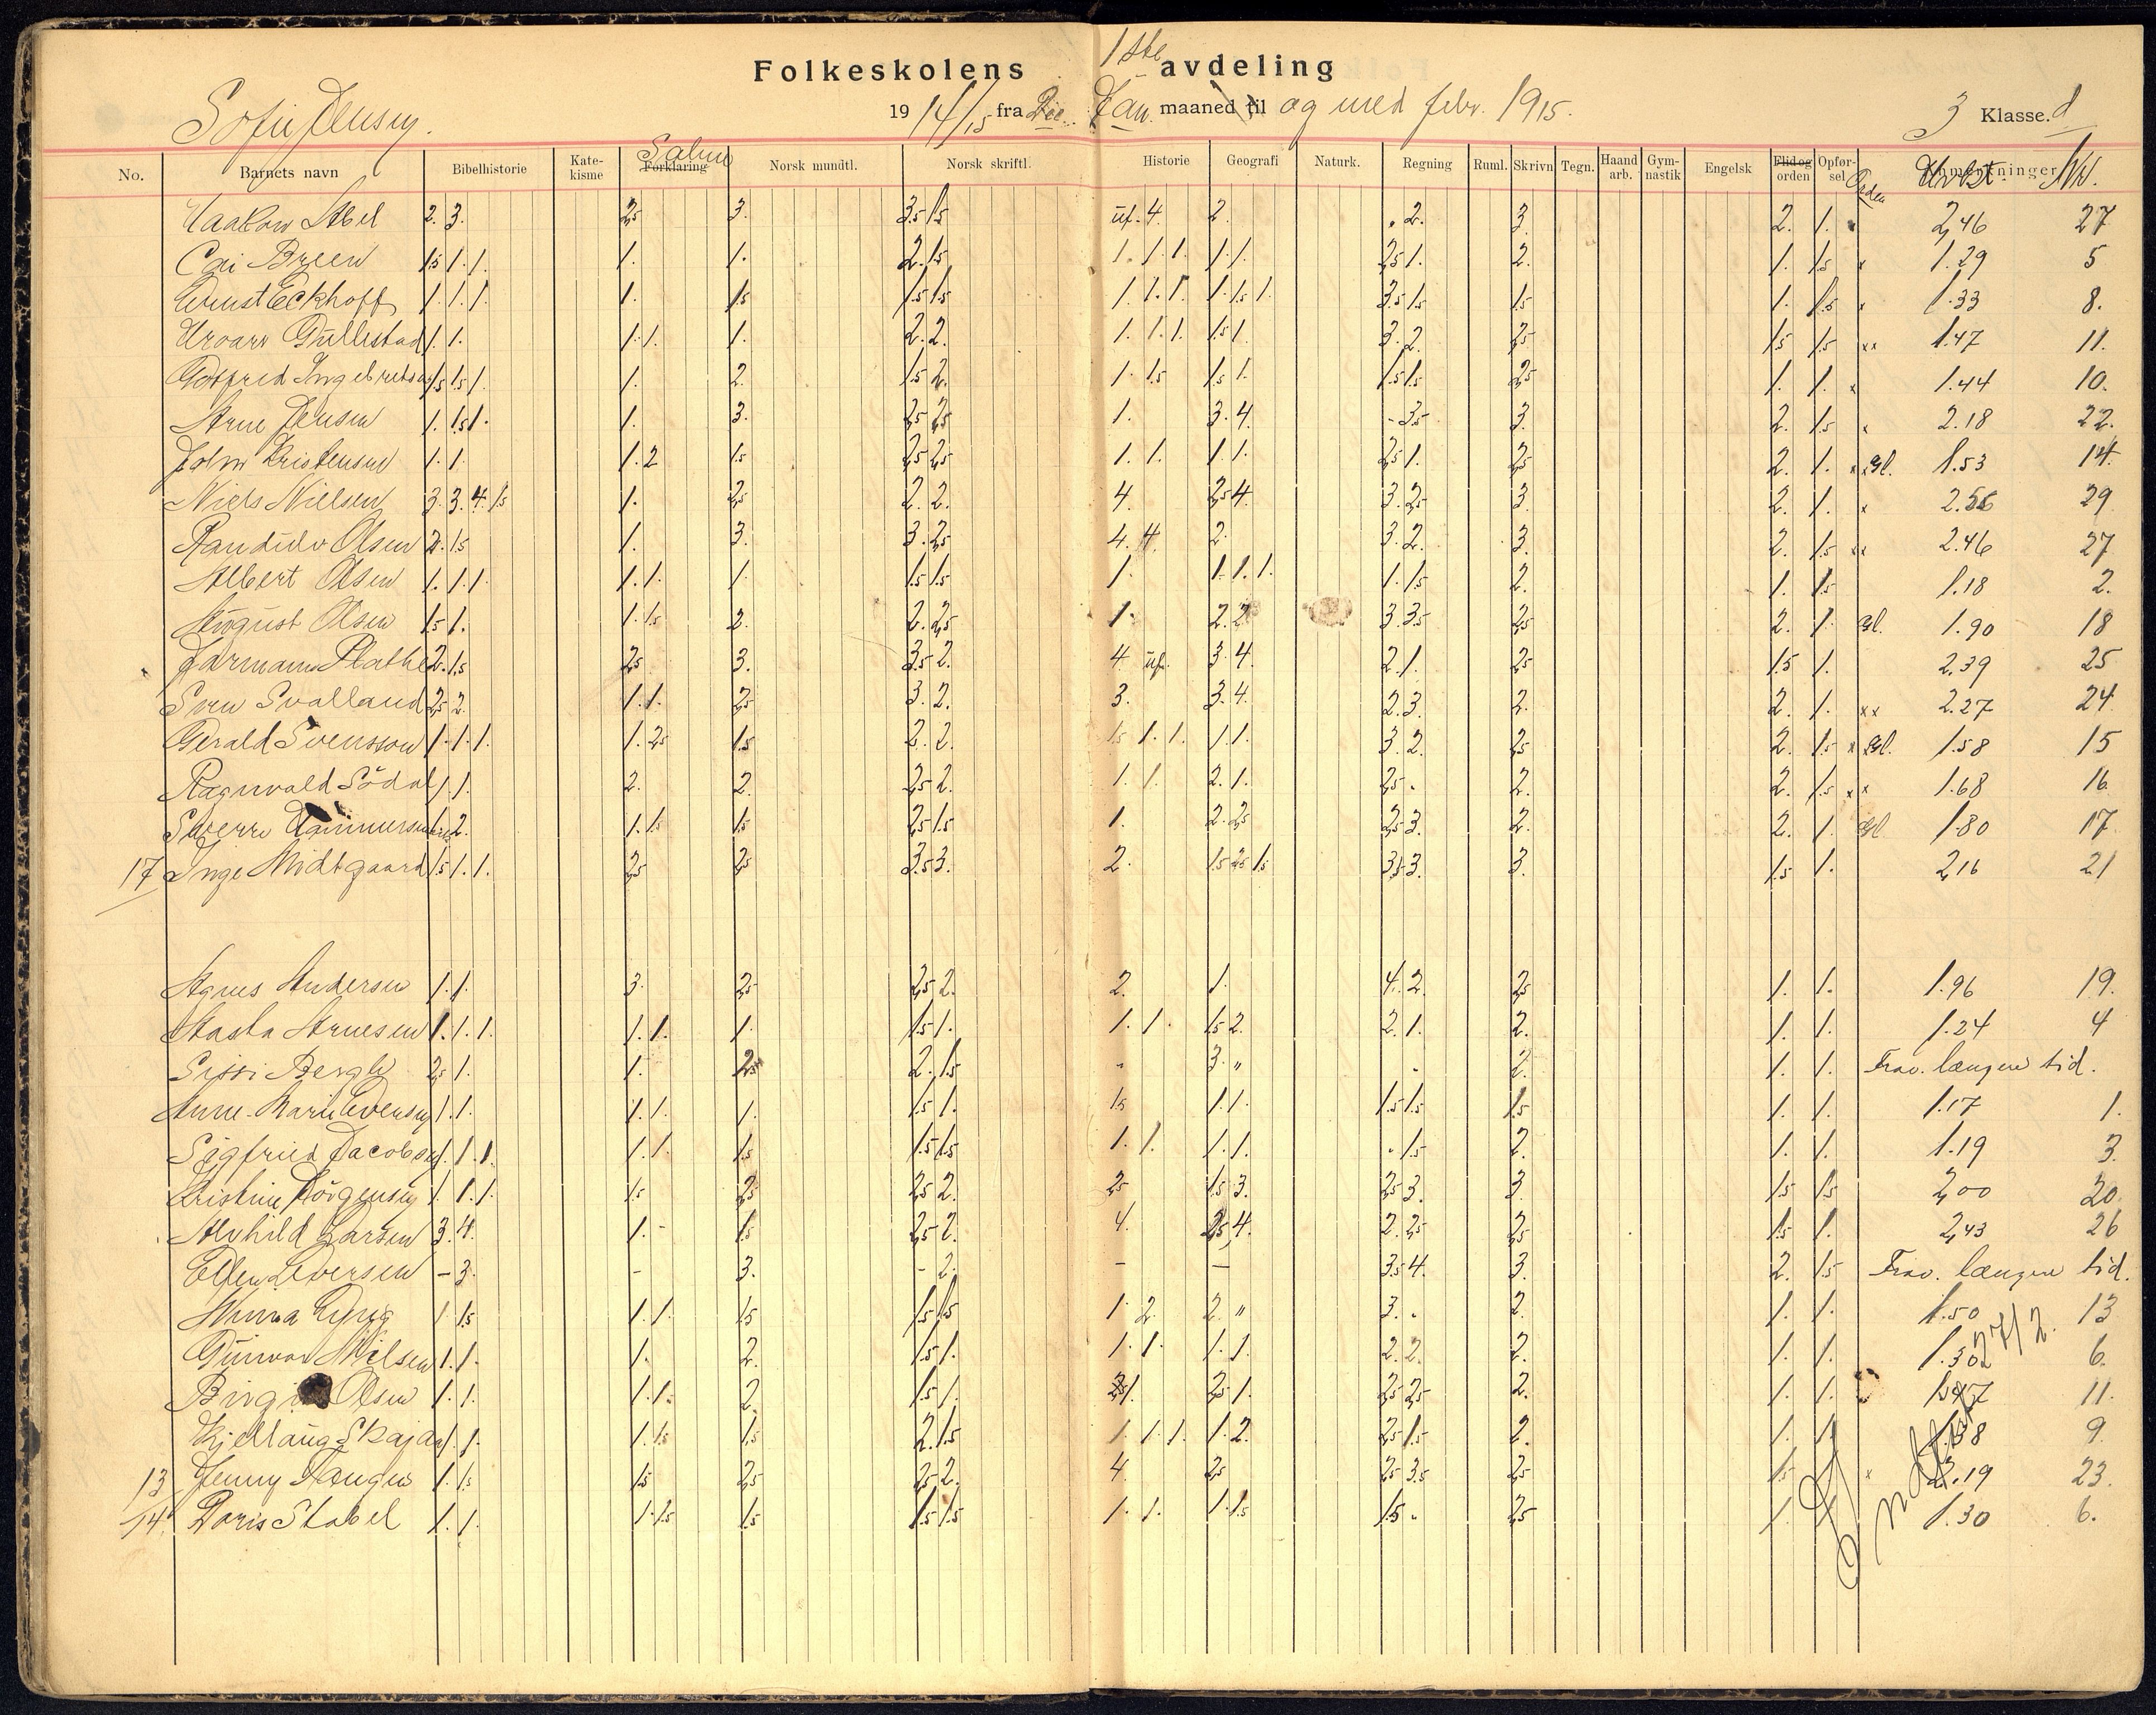 Folkeskolens 1ste avdeling
Sofie Jensen.
1914/15 fra Dec. Jan. maaned til og med febr. 1915.
3 Klasse. d
No. Barnets navn Bibelhistorie Kate-kisme Forklaring Salme Norsk mundtl. Norsk skriftl. Historie Geografi Naturk. Regning Ruml. Skrivn. Tegn. Haand arb. Gym-nastik Engelsk Flid og orden Opfør-sel Orden Anmerkninger Nr.
Haakon Abel 2. 3. 2,5 3. 3.5 1.5 uf. 4 2. . 2. 3. 2. 1. 2,46 27
Cai Breen 1.5 1. 1. 1. 1. 2. 1.5 1. 1. 1. 1. 1. 2.5 1. 2. 1. 1.5 x 1.29 5
Ernst Eckhoff 1. 1. 1. 1. 1.5 1.5 1.5 1. 1. 1. 1. 1.5 1 3.5 1.5 1.5 1. 1.5 x 1.33 8.
Hroar Gullestad 1. 1. 1. 1. 1. 2. 2. 1. 1. 1. 1.5 1. 3. 2. 2,5 1.5 1.5 xx 1.47 11.
Gotfred Ingebretsen 1.5 1.5 1. 1. 2. 1.5 2. 1. 1.5 1.5 1. 1.5 1.5 2,5 1. 1. x 1.44 10.
Arne Jensen 1. 1.5 1. 1. 3. 2,5 2,5 1. 3. 4. - 3.5 3. 2. 1.5 x 2.18 22.
John Kristensen 1. 1. 1. 2 1.5 2,5 2,5 1. 1. 1. 1. 2,5 1. 2,5 2. 1. xx Gl. 1.53 14.
Niels Nielsen 3. 3. 4. 1.5 1. 2,5 2. 2. 4. 2,5 4. 3. 2,5 3. 2. 1. x 2.56 29
Randulv Olsen 2. 1.5 1. 3. 3. 2,5 4. 4. 2. 3. 2. 3. 2. 1.5 xx 2.46 27
Albert Olsen 1. 1. 1. 1. 1. 1. 1.5 1.5 1. 1. 1. 1. 1. 1.5 2. 1. 1.5 1.18 2.
August Olsen 1.5 1. 1. 1.5 2. 2. 2,5 1. 2. 2. 3. 3.5 2,5 2. 1. Gl. 1.90 18
Jarmann Plathe 2. 1.5 2,5 3. 3.5 2. 4 uf. 3. 4. 2. 1. 2,5 1.5 1. 2.39 25
Sven Svalland 2,5 2. 1. 1. 2,5 3. 2. 3. 3. 4. 2. 3. 2. 2. 1. xx 2.27 24
Gerald Svensson 1. 1. 1. 1. 2,5 1.5 2. 2. 1.5 1. 1. 1. 1. 3. 2. 2,5 2. 1.5 x x Gl. 1.58 15
Ragnvald Södal 1. 1. 2. 2. 2,5 2. 1. 1. 2. 1. 2,5 . 2. 2. 1.5 x x 1.68 16
Sverre 1. 2. 1. 1.5 1.5 2,5 1.5 1. 2. 2,5 2,5 3. 2. 2. 1. Gl 1.80 17
17 Inge Midtgaard 1.5 1. 1. 2,5 2,5 3.5 3. 2. 1.5 2,5 1.5 3.5 3. 3. 1.5 1. 2,16 21
Agnes Andersen 1. 1. 3. 2,5 2,5 2. 2. 1. 4. 2. 2,5 1. 1. 1.96 19.
Aasta Arnesen 1. 1. 1. 1. 1. 1. 1.5 1. 1. 1. 1.5 2. 2. 1. 2. 1. 1. 1.24 4
Sissi Bergh 2,5 1. 1. 2,5 2. 1.5 " 3. " " 2. 1. 1. Frav. længere tid.
Anne-Karin Evensen 1. 1. 1. 1. 1. 1.5 1. 1.5 1. 1. 1.5 1.5 1.5 1. 1. 1.17 1.
Sigfried Jacobsen 1. 1. 1. 1. 1. 1.5 1.5 1.5 1. 1. 1. 1. . 1.5 2. 1. 1. 1.19 3.
Kristine Jörgensen 1. 1. 1. 1.5 2,5 2,5 2. 2,5 1.5 3. 2,5 3. 3. 1.5 1.5 2,00 20.
Alvhild Larsen 3. 4. 1. - 1.5 2,5 2. 4. 2,5 4. 2. 2,5 2,5 1.5 1. 2,43 26
Ellen Iversen - 3. - 3. - 2. - - 3.5 4. 3. 2. 1.5 Frav. længere tid.
Minna Lyng 1. 1.5 1. 1. 1.5 1.5 1.5 1. 2. 2. " 3. . 2. 1. 1. 1.50 13
Gunvor Nilsen 1. 1. 1. 2. 1.5 1. 1. 1. 1. 1. 2. 2. 2. 1. 1. 1.30 6.
27/2.
Olsen 1. 1. 1. 1. 2. 1.5 1. 1. 2,5 1. 2,5 2,5 2. 1. 1. 1.47 11.
Kjellaug Skajaa 1. 1. 1. 1.5 1.5 2. 1.5 1. 1. 1. 1. 2. 2,5 1.5 2. 1. 1. 1.38 9.
13 Jenny Tangen 1. 1.5 1.5 2,5 2,5 2. 4. 2,5 2,5 3.5 2,5 1.5 x 2.19 23.
14 Doris Stabel 1. 1. 1. 1.5 1.5 1.5 1.5 1. 1. 1. 1.5 1.5 " 2,5 1. 1. 1.30 6.